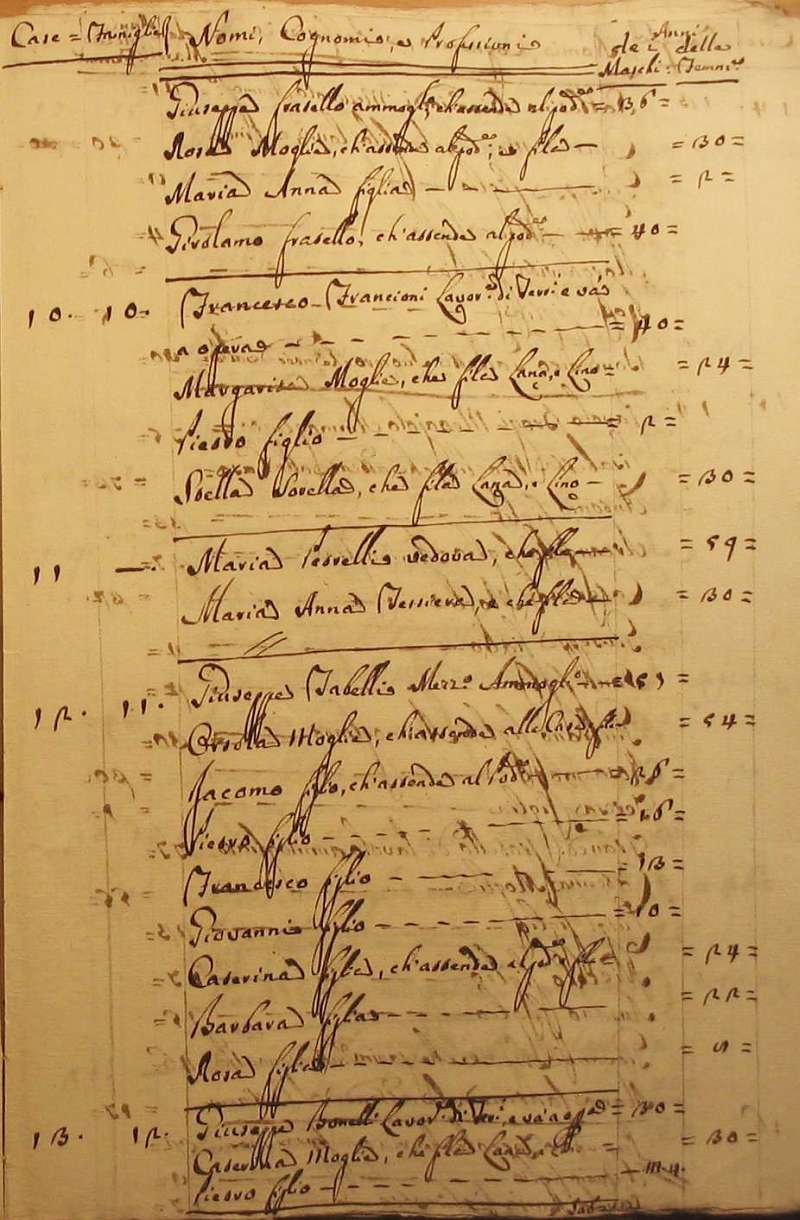 Case = Famiglie Nomi, Cognomi, e Professioni Anni
dei delle
Maschi = Femmine
Giuseppe Frasello ammogl.º ch'assende al pod.e = 36 =
Rosa Moglie, ch'assende al pod.e, e fila — = 30 =
Maria Anna figlia — = 2 =
Girolamo Frasello, ch'assende al pod.e — = 40 =
10. 10. Francesco Francioni Lavor.e di Terre e và
a opera — = 40 =
Margarita Moglie, che fila Lana, e Lino = = 24 =
Pietro figlio — = 2 =
Stella Sorella, che fila Lana, e Lino — = 30 =
11 —. Maria Petrelli vedova, che fila — = 59 =
Maria Anna Tessiera, e che fila — = 30 =
12. 11. Giuseppe Tabelli Mezz.º Ammogl.º = 51 =
Orsola Moglie, ch'assende alle Case, e fila = 54 =
Jacomo figlio, ch'assende al Pod.e — = 26 =
Pietro figlio — = 16 =
Francesco figlio — = 13 =
Giovanni figlio — = 10 =
Caterina figlia, ch'assende al pod.e e fila = = 24 =
Barbara figlia — = 22 =
Rosa figlia —
13. 12. Giuseppe Bonelli Lavor.e di Terre, e và a opera = 30 =
Caterina Moglie, che fila Lana, e = 30 =
Pietro figlio — m. 4.